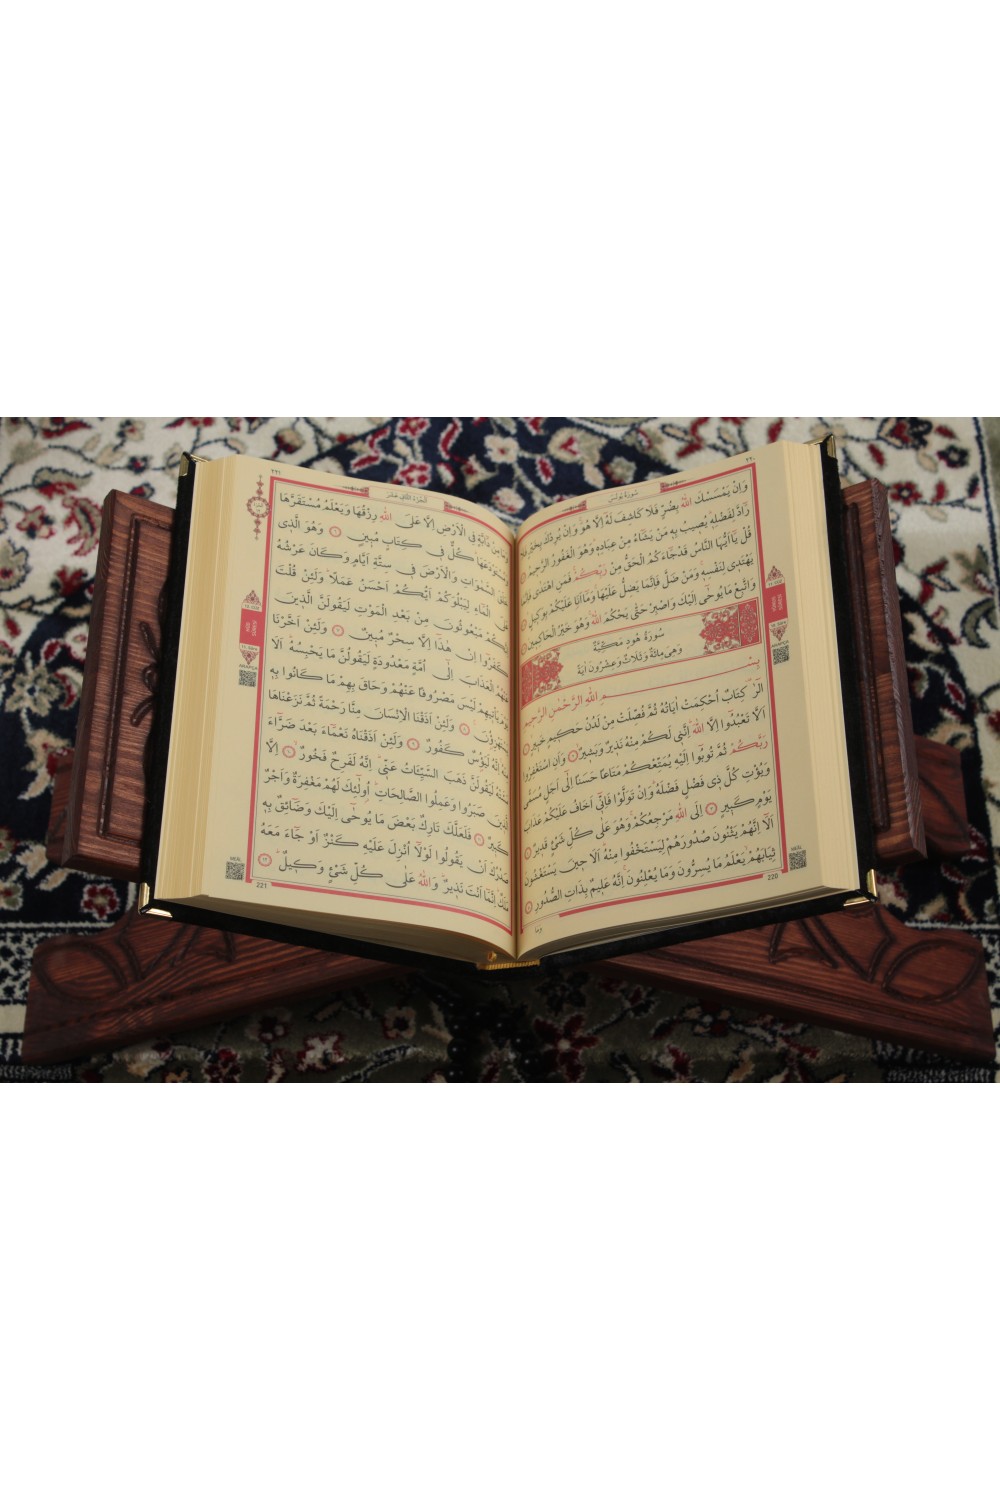 ٢٢٠
سُورَةُ يُونُسَ
وَاِنْ يَمْسَسْكَ اللّٰهُ بِضُرٍّ فَلَا كَاشِفَ لَهُٓ اِلَّا هُوَۚ وَاِنْ يُرِدْكَ بِخَيْرٍ فَلَا
رَٓادَّ لِفَضْلِه۪ۜ يُص۪يبُ بِه۪ مَنْ يَشَٓاءُ مِنْ عِبَادِه۪ۜ وَهُوَ الْغَفُورُ الرَّح۪يمُ
قُلْ يَٓا اَيُّهَا النَّاسُ قَدْ جَٓاءَكُمُ الْحَقُّ مِنْ رَبِّكُمْۚ فَمَنِ اهْتَدٰى فَاِنَّمَا
يَهْتَد۪ي لِنَفْسِه۪ۚ وَمَنْ ضَلَّ فَاِنَّمَا يَضِلُّ عَلَيْهَاۚ وَمَٓا اَنَا۬ عَلَيْكُمْ بِوَك۪يلٍۜ
وَاتَّبِعْ مَا يُوحٰٓى اِلَيْكَ وَاصْبِرْ حَتّٰى يَحْكُمَ اللّٰهُۚ وَهُوَ خَيْرُ الْحَاكِم۪ينَ
سُورَةُ هُودٍ مَكِّيَّةٌ
وَهِيَ مِائَةٌ وَثَلَاثٌ وَعِشْرُونَ اٰيَةً
بِسْمِ اللّٰهِ الرَّحْمٰنِ الرَّح۪يمِ
الٓرٰ۠ كِتَابٌ اُحْكِمَتْ اٰيَاتُهُ ثُمَّ فُصِّلَتْ مِنْ لَدُنْ حَك۪يمٍ خَب۪يرٍۙ ١
اَلَّا تَعْبُدُٓوا اِلَّا اللّٰهَۜ اِنَّن۪ي لَكُمْ مِنْهُ نَذ۪يرٌ وَبَش۪يرٌۙ ٢ وَاَنِ اسْتَغْفِرُوا
رَبَّكُمْ ثُمَّ تُوبُٓوا اِلَيْهِ يُمَتِّعْكُمْ مَتَاعًا حَسَنًا اِلٰٓى اَجَلٍ مُسَمًّى
وَيُؤْتِ كُلَّ ذ۪ي فَضْلٍ فَضْلَهُۜ وَاِنْ تَوَلَّوْا فَاِنّ۪ٓي اَخَافُ عَلَيْكُمْ عَذَابَ
يَوْمٍ كَب۪يرٍ ٣ اِلَى اللّٰهِ مَرْجِعُكُمْۚ وَهُوَ عَلٰى كُلِّ شَيْءٍ قَد۪يرٌ ٤
اَلَٓا اِنَّهُمْ يَثْنُونَ صُدُورَهُمْ لِيَسْتَخْفُوا مِنْهُۜ اَلَا ح۪ينَ يَسْتَغْشُونَ
ثِيَابَهُمْۙ يَعْلَمُ مَا يُسِرُّونَ وَمَا يُعْلِنُونَۚ اِنَّهُ عَل۪يمٌ بِذَاتِ الصُّدُورِ ٥
MEÂL
220
وما
٢٢١
اَلْجُزْءُ الثَّانِي عَشَرَ
وَمَا مِنْ دَٓابَّةٍ فِي الْاَرْضِ اِلَّا عَلَى اللّٰهِ رِزْقُهَا وَيَعْلَمُ مُسْتَقَرَّهَا
وَمُسْتَوْدَعَهَاۜ كُلٌّ ف۪ي كِتَابٍ مُب۪ينٍ ٦ وَهُوَ الَّذ۪ي
خَلَقَ السَّمٰوَاتِ وَالْاَرْضَ ف۪ي سِتَّةِ اَيَّامٍ وَكَانَ عَرْشُهُ
عَلَى الْمَٓاءِ لِيَبْلُوَكُمْ اَيُّكُمْ اَحْسَنُ عَمَلًاۜ وَلَئِنْ قُلْتَ
اِنَّكُمْ مَبْعُوثُونَ مِنْ بَعْدِ الْمَوْتِ لَيَقُولَنَّ الَّذ۪ينَ
كَفَرُٓوا اِنْ هٰذَٓا اِلَّا سِحْرٌ مُب۪ينٌ ٧ وَلَئِنْ اَخَّرْنَا
عَنْهُمُ الْعَذَابَ اِلٰٓى اُمَّةٍ مَعْدُودَةٍ لَيَقُولُنَّ مَا يَحْبِسُهُۜ اَلَا
يَوْمَ يَأْت۪يهِمْ لَيْسَ مَصْرُوفًا عَنْهُمْ وَحَاقَ بِهِمْ مَا كَانُوا بِه۪
يَسْتَهْزِؤُ۫نَ۟ ٨ وَلَئِنْ اَذَقْنَا الْاِنْسَانَ مِنَّا رَحْمَةً ثُمَّ نَزَعْنَاهَا
مِنْهُۚ اِنَّهُ لَيَؤُ۫سٌ كَفُورٌ ٩ وَلَئِنْ اَذَقْنَاهُ نَعْمَٓاءَ بَعْدَ ضَرَّٓاءَ
مَسَّتْهُ لَيَقُولَنَّ ذَهَبَ السَّيِّـَٔاتُ عَنّ۪يۜ اِنَّهُ لَفَرِحٌ فَخُورٌۙ ١٠ اِلَّا
الَّذ۪ينَ صَبَرُوا وَعَمِلُوا الصَّالِحَاتِۜ اُو۬لٰٓئِكَ لَهُمْ مَغْفِرَةٌ وَاَجْرٌ
كَب۪يرٌ ١١ فَلَعَلَّكَ تَارِكٌ بَعْضَ مَا يُوحٰٓى اِلَيْكَ وَضَٓائِقٌ بِه۪
صَدْرُكَ اَنْ يَقُولُوا لَوْلَٓا اُنْزِلَ عَلَيْهِ كَنْزٌ اَوْ جَٓاءَ مَعَهُ
مَلَكٌۜ اِنَّمَٓا اَنْتَ نَذ۪يرٌۜ وَاللّٰهُ عَلٰى كُلِّ شَيْءٍ وَك۪يلٌۜ ١٢
MEÂL
221